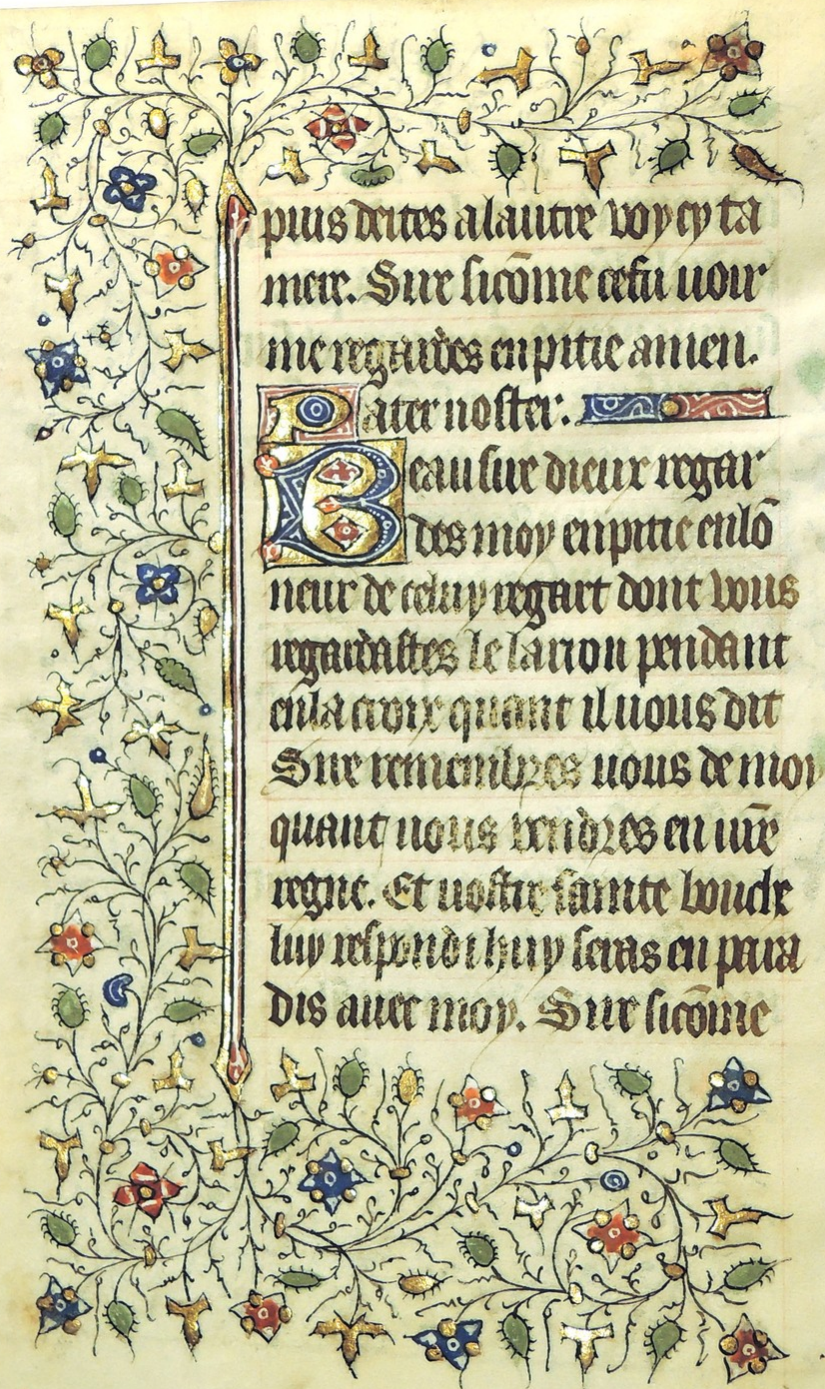 puis deites a lautre voy cy ta
mere. Sire sicōme ce fu uoir
me regardes en pitie amen.
Pater noster.
Beau sire dieux regar
des moy en pitie en lō
neur de celuy regart dont vous
regardastes le larron pendant
en la croix quant il uous dit
Sire remembres uous de moy
quant uous vendres en urē
regne. Et uostre sainte bouche
luy respondi huy seras en para
dis auec moy. Sire sicōme